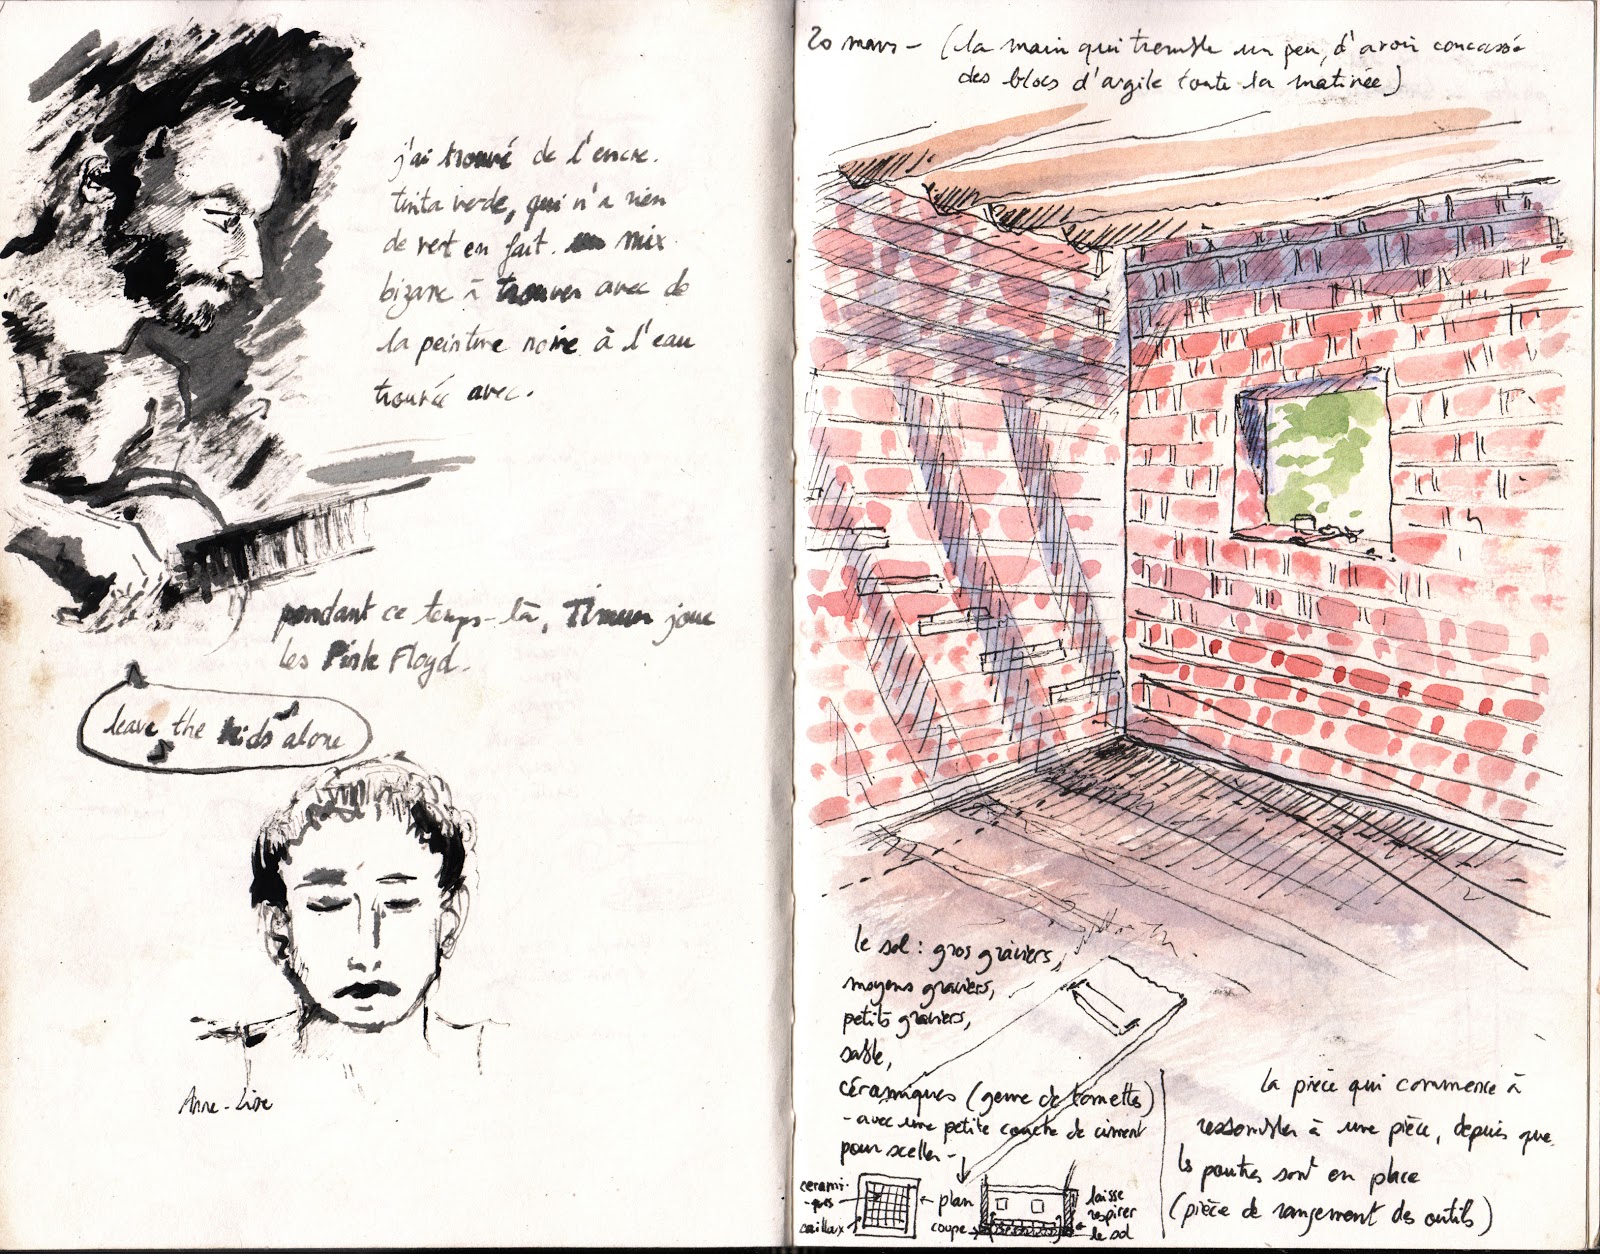 j'ai trouvé de l'encre.
tinta verde, qui n'a rien
de vert en fait. un mix
bizarre à trouver avec de
la peinture noire à l'eau
trouvée avec.
pendant ce temps-là, Timeun joue
les Pink Floyd.
leave the kids alone
Anne-Lise
20 mars - (la main qui tremble un peu, d'avoir concassé
des blocs d'argile toute la matinée)
le sol : gros graviers,
moyens graviers,
petits graviers,
sable,
céramiques (genre de tomettes)
- avec une petite couche de ciment
pour sceller -
cérami-
-ques
cailloux
← plan
coupe
laisse
respirer
le sol
la pièce qui commence à
ressembler à une pièce, depuis que
les poutres sont en place
(pièce de rangement des outils)